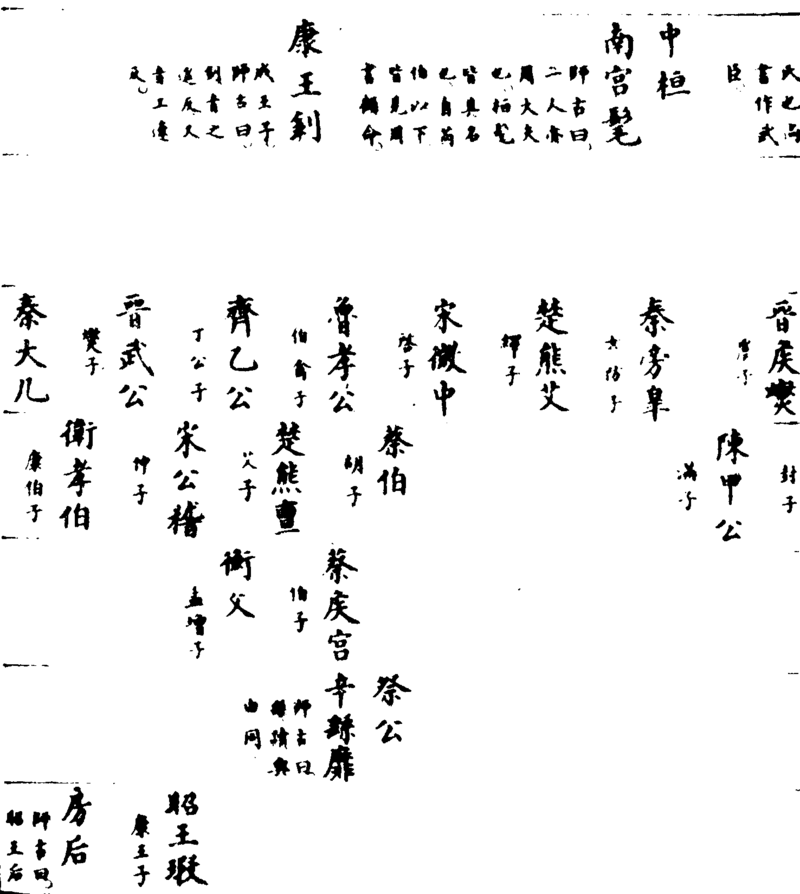 氏也尚
書作武
臣
中桓
南宮髦
師古曰
二人亦
周大夫
也桓髦
皆其名
也自芮
伯以下
皆見周
書顧命
康王釗
成王子
師古曰
釗音之
遙反又
音工遼
反
晉侯燮
虞子
秦旁皋
女防子
楚熊艾
繹子
宋微中
啓子
魯孝公
伯禽子
齊乙公
丁公子
晉武公
燮子
秦大几
封子
陳申公
滿子
蔡伯
胡子
楚熊亶
乂子
宋公稽
仲子
衛孝伯
康伯子
蔡侯宮
伯子
衡父
孟增子
祭公
辛繇靡
師古曰
繇讀與
由同
昭王瑕
康王子
房后
師古曰
昭王后